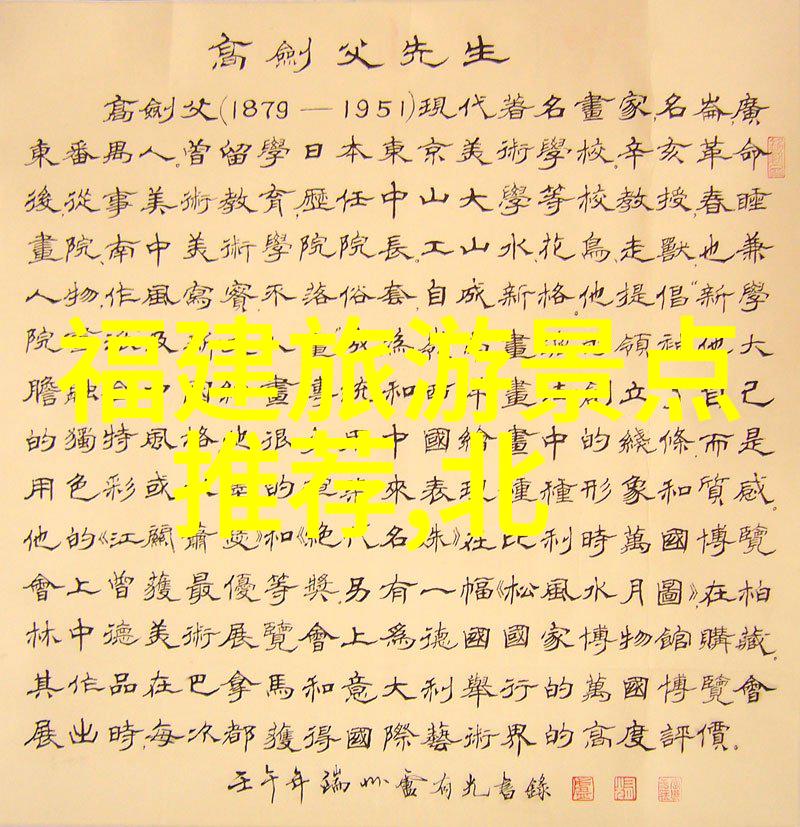 高劍父先生
高劍父(1879—1951)現代著名畫家,名崙,廣
東番禺人。曾留學日本東京美術學校.辛亥革命
後,從事美術教育,歷任中山大學等校教授,春睡
畫院,南中美術學院院長.工山水,花鳥,走獸,也兼
人物,作風寫實,不落俗套,自成新格。他提倡“新學
院 畫 領 他大
福建旅游景点
膽融 中國 畫 統和西 畫 創立了自己
的獨特風格 很 中國繪畫中的綫條,而是
用色彩或 的 來表現種種形象和質感。
推荐,北
他的《江關蕭 》和《絕代名姝》在比利時萬國博覽
會上曾獲最優等獎.另有一幅《松風水月圖》,在柏
林中德美術展覽會上爲德國國家博物館購藏.
其作品在巴拿馬和意大利舉行的萬國博覽會
展出時,每次都獲得國際藝術界的高度評價。
壬午年端州盧有光書錄